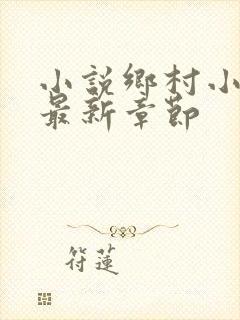 小説鄉村小
最新章節
符蓮